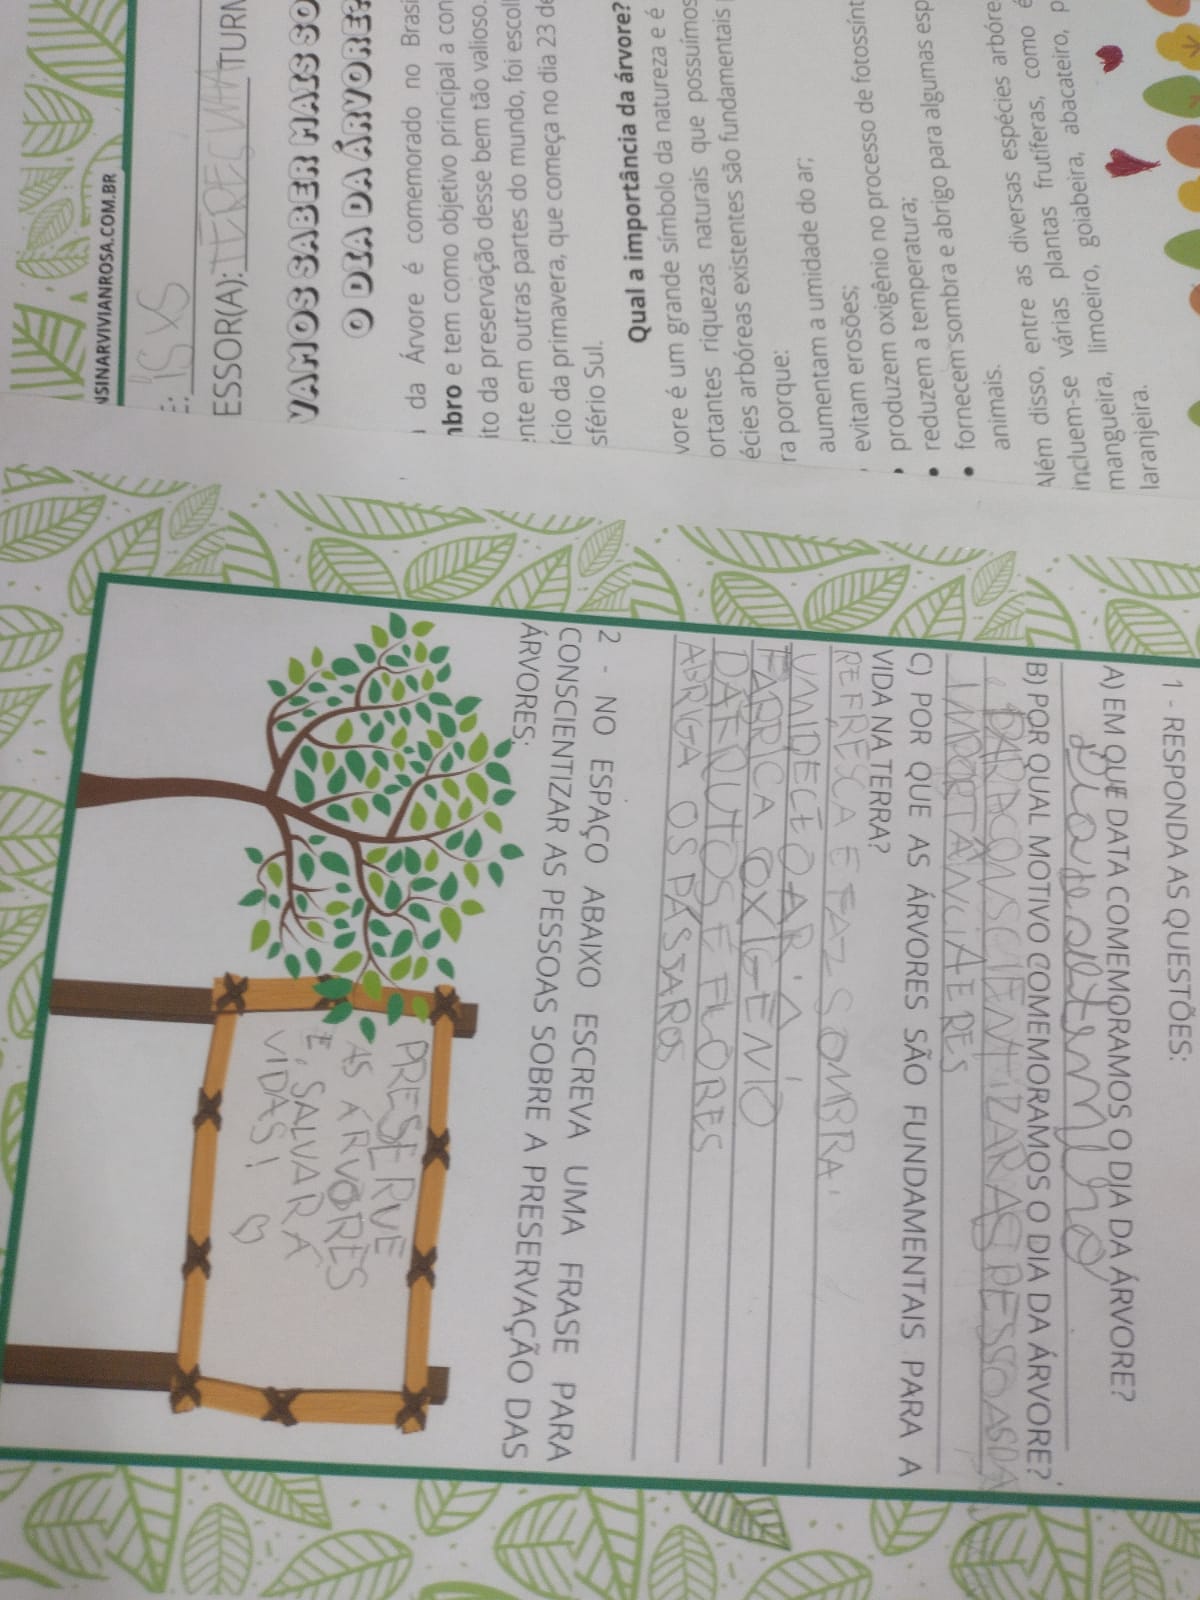 NSINARVIVIANROSA.COM.BR
ESSOR(A): TURN
VAMOS SABER MAIS SO
O DIA DA ÁRVORE?
da Árvore é comemorado no Brasi
nbro e tem como objetivo principal a con
ito da preservação desse bem tão valioso.
nte em outras partes do mundo, foi escoll
ício da primavera, que começa no dia 23 de
sfério Sul.
Qual a importância da árvore?
vore é um grande símbolo da natureza e é
ortantes riquezas naturais que possuímos
écies arbóreas existentes são fundamentais
ra porque:
aumentam a umidade do ar;
evitam erosões;
• produzem oxigênio no processo de fotossínt
• reduzem a temperatura;
• fornecem sombra e abrigo para algumas esp
animais.
Além disso, entre as diversas espécies arbóre
incluem-se várias plantas frutíferas, como é
mangueira, limoeiro, goiabeira, abacateiro, p
laranjeira.
1 - RESPONDA AS QUESTÕES:
A) EM QUE DATA COMEMORAMOS O DIA DA ÁRVORE?
Dia de setembro
B) POR QUAL MOTIVO COMEMORAMOS O DIA DA ÁRVORE?
PARA CONSCIENTIZAR AS PESSOAS DA
IMPORTÂNCIA E PÉS
C) POR QUE AS ÁRVORES SÃO FUNDAMENTAIS PARA A
VIDA NA TERRA?
REFRESCA E FAZ SOMBRA
UMIDECE O AR
FABRICA OXIGENIO
DÁ FRUTOS E FLORES
ABRIGA OS PÁSSAROS
2 - NO ESPAÇO ABAIXO ESCREVA UMA FRASE PARA
CONSCIENTIZAR AS PESSOAS SOBRE A PRESERVAÇÃO DAS
ÁRVORES:
PRESERVE
AS ÁRVORES
E SALVARÁ
VIDAS!